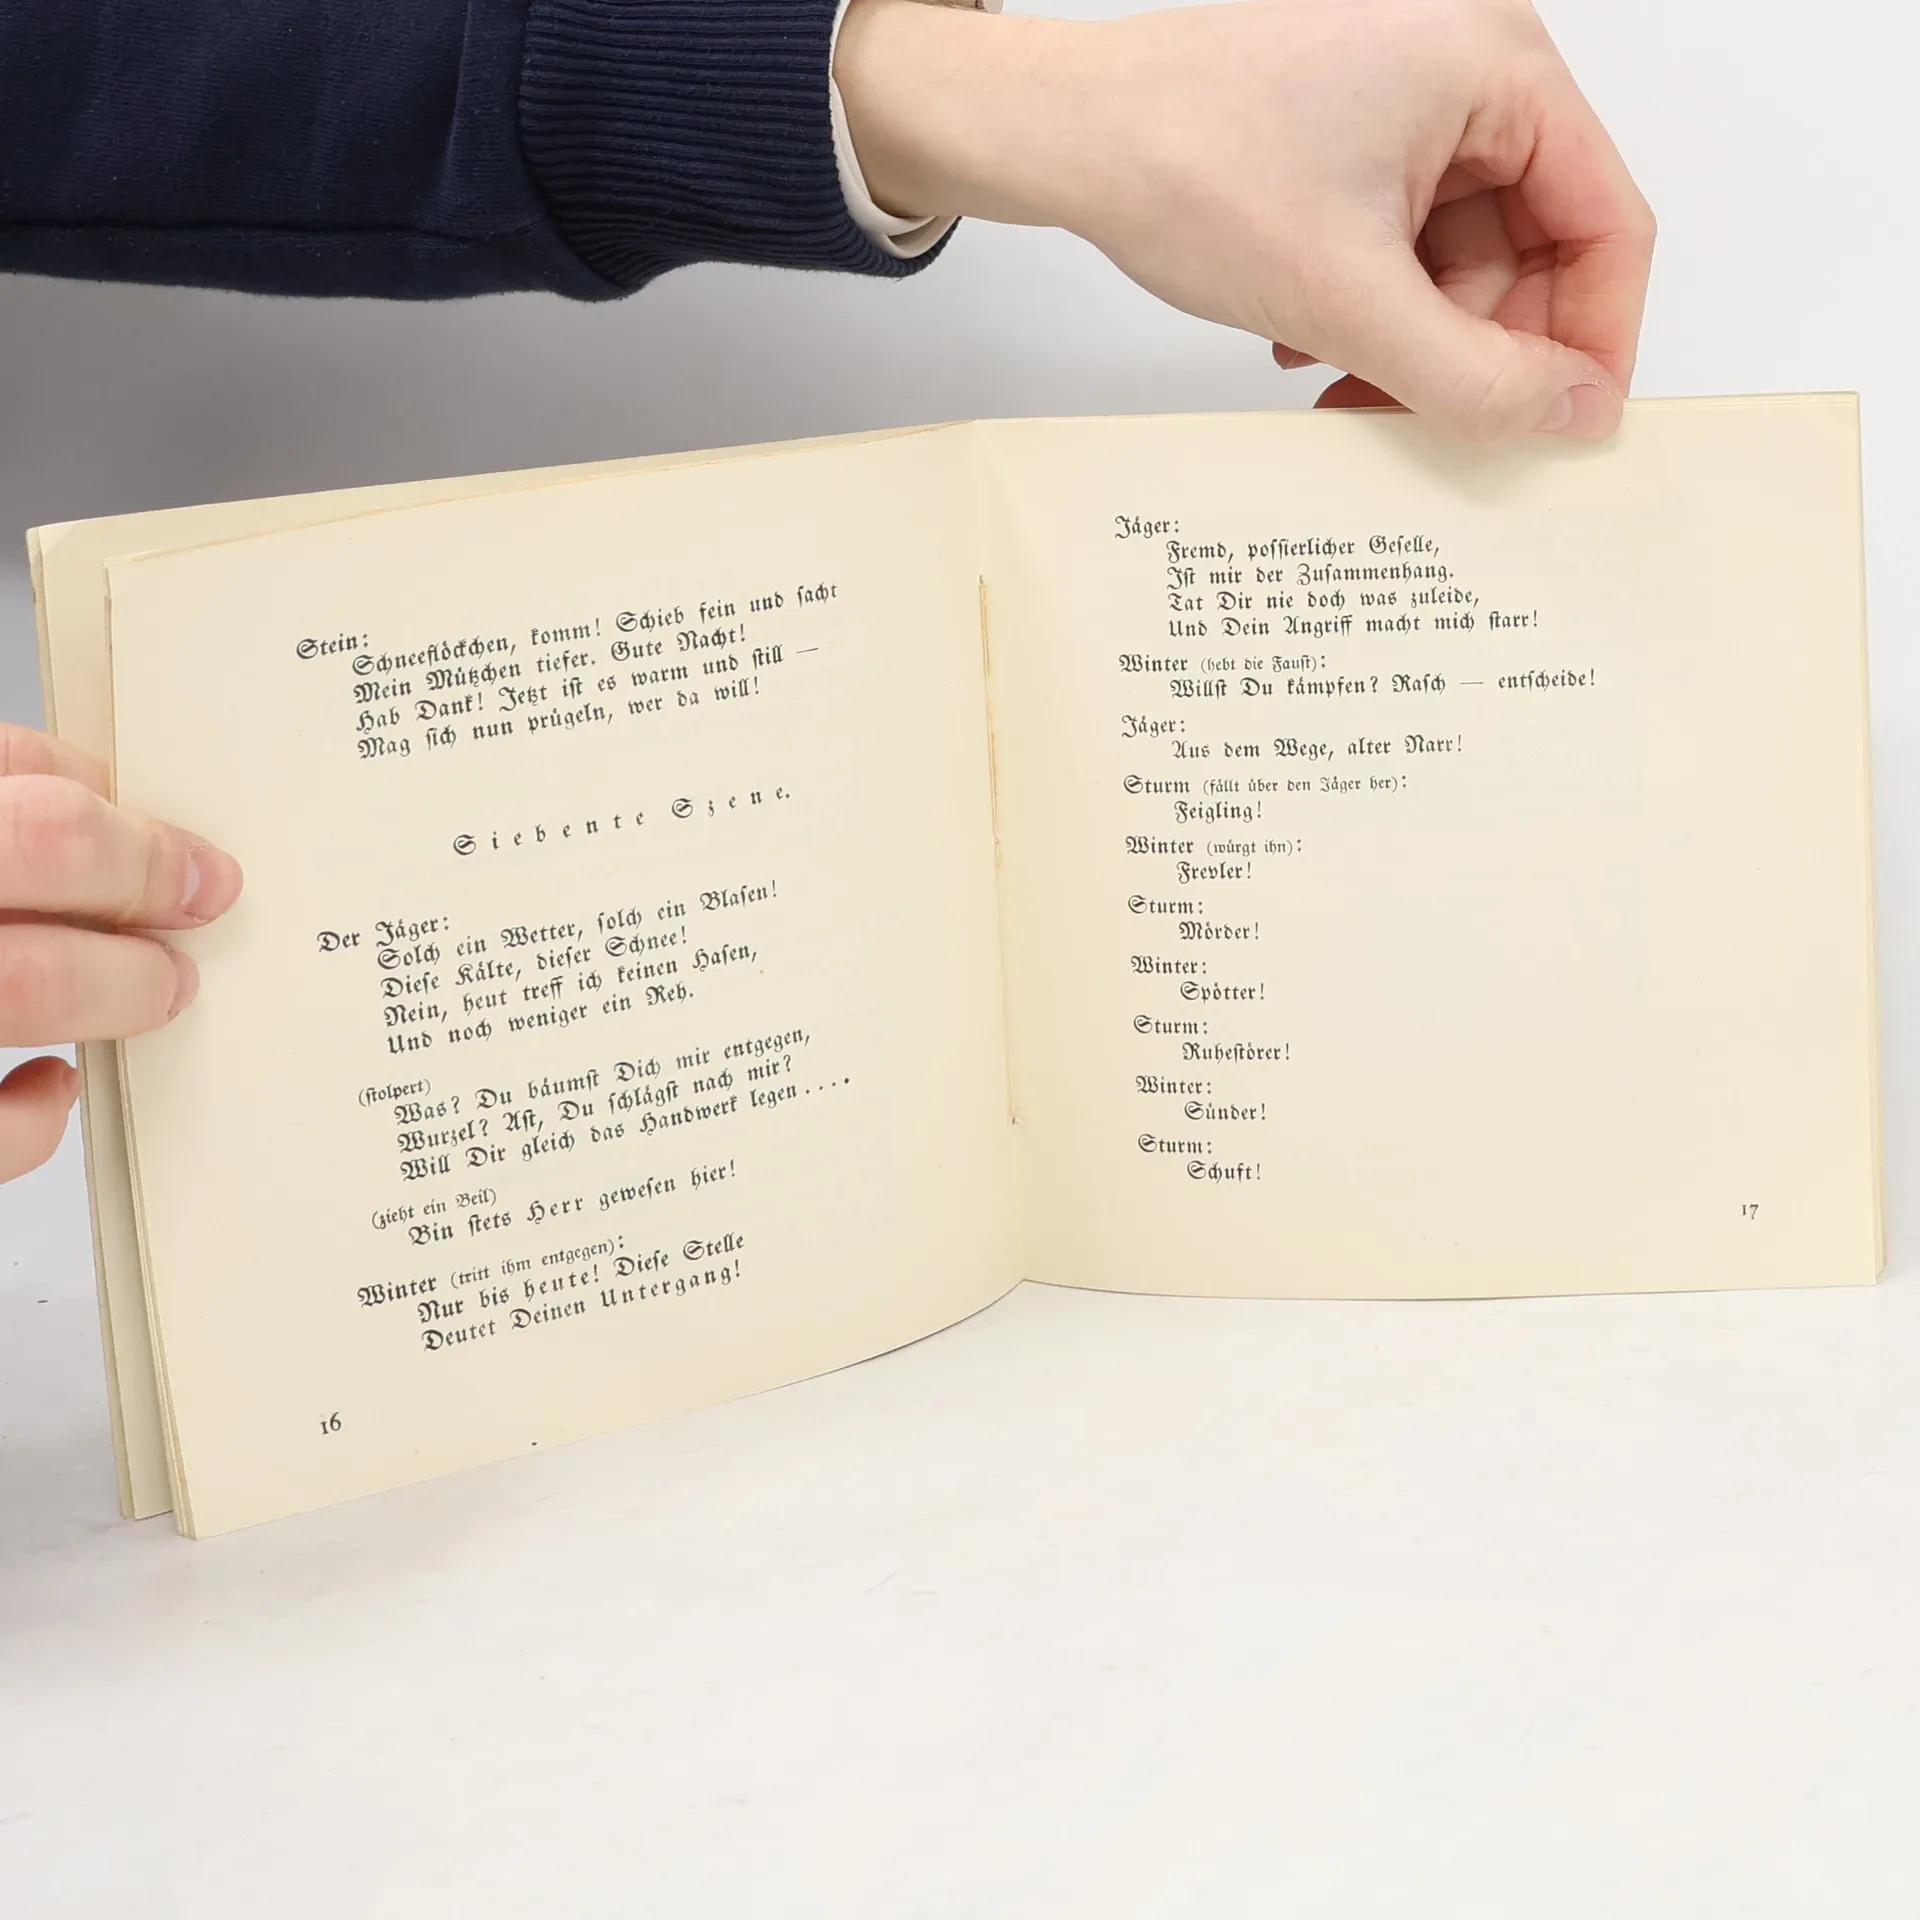 Stein:
Schneeflöckchen, komm! Schieb fein und sacht
Mein Mützchen tiefer. Gute Nacht!
Hab Dank! Jetzt ist es warm und still —
Mag sich nun prügeln, wer da will!
Siebente Szene.
Der Jäger:
Solch ein Wetter, solch ein Blasen!
Diese Kälte, dieser Schnee!
Nein, heut treff ich keinen Hasen,
Und noch weniger ein Reh.
(stolpert)
Was? Du bäumst Dich mir entgegen,
Wurzel? Ast, Du schlägst nach mir?
Will Dir gleich das Handwerk legen....
(zieht ein Beil)
Bin stets Herr gewesen hier!
Winter (tritt ihm entgegen):
Nur bis heute! Diese Stelle
Deutet Deinen Untergang!
16
Jäger:
Fremd, possierlicher Geselle,
Ist mir der Zusammenhang.
Tat Dir nie doch was zuleide,
Und Dein Angriff macht mich starr!
Winter (hebt die Faust):
Willst Du kämpfen? Rasch — entscheide!
Jäger:
Aus dem Wege, alter Narr!
Sturm (fällt über den Jäger her):
Feigling!
Winter (würgt ihn):
Frevler!
Sturm:
Mörder!
Winter:
Spötter!
Sturm:
Ruhestörer!
Winter:
Sünder!
Sturm:
Schuft!
17